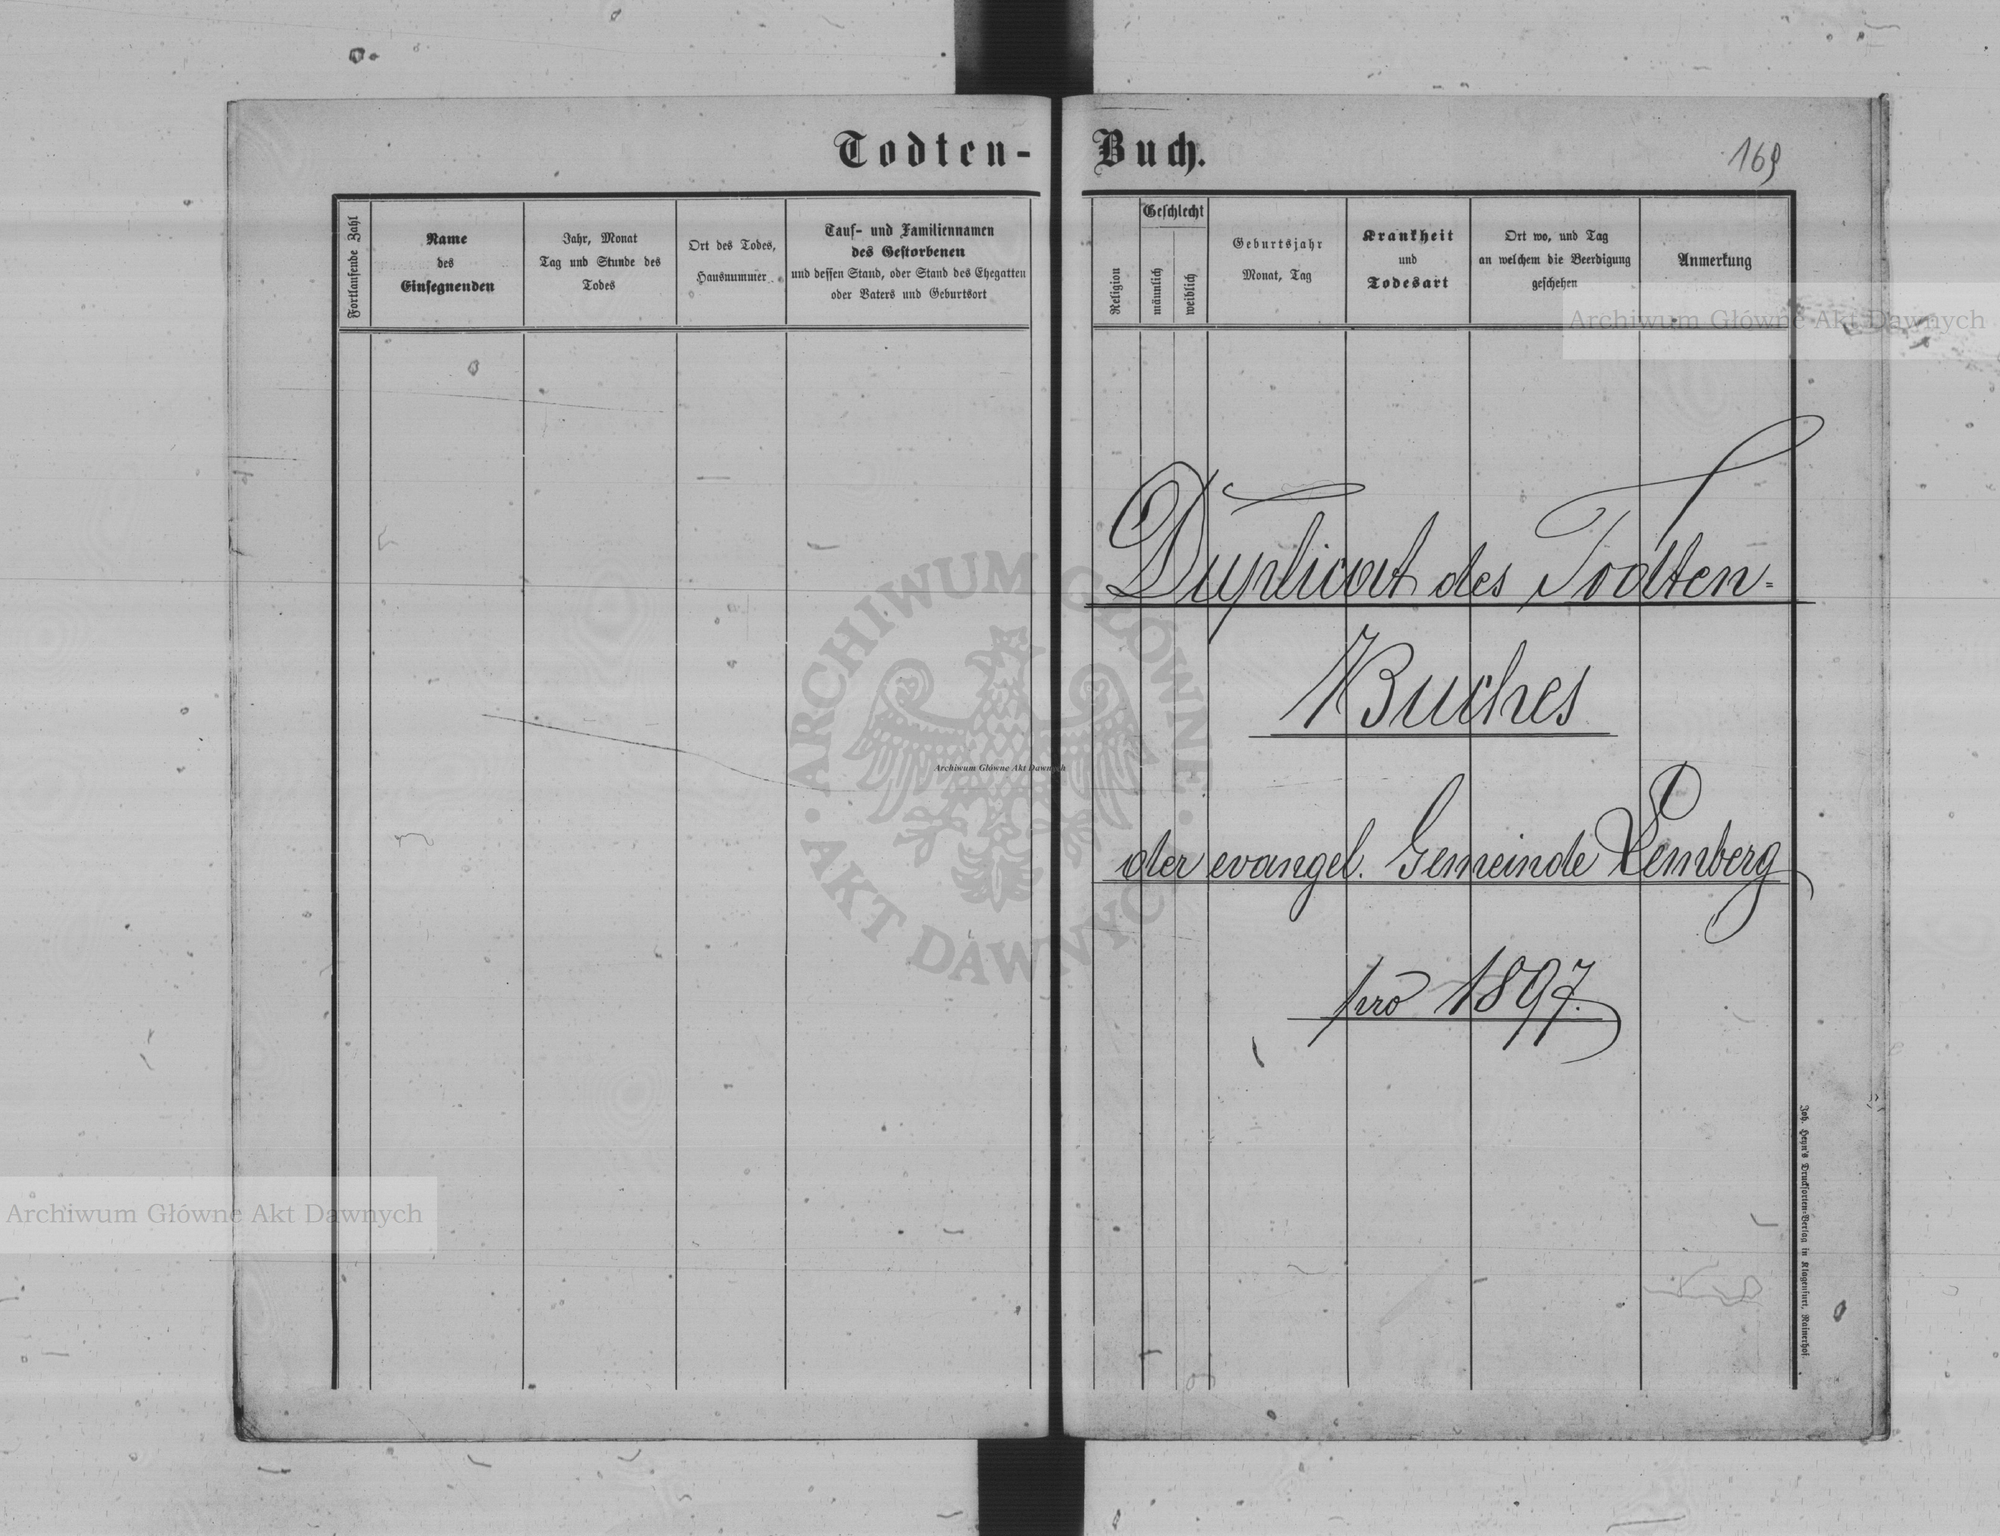 Todten-Buch.
169
Fortlaufende Zahl
Name
des
Einsegnenden
Jahr, Monat
Tag und Stunde des
Todes
Ort des Todes,
Hausnummer
Tauf- und Familiennamen
des Gestorbenen
und dessen Stand, oder Stand des Ehegatten
oder Vaters und Geburtsort
Religion
Geschlecht
männlich
weiblich
Geburtsjahr
Monat, Tag
Krankheit
und
Todesart
Ort wo, und Tag
an welchem die Beerdigung
geschehen
Anmerkung
Archiwum Główne Akt Dawnych
Duplicat des Todten-
Buches
der evangel. Gemeinde Lemberg
pro 1897.
ARCHIWUM GŁÓWNE · AKT DAWNYCH ·
Archiwum Główne Akt Dawnych
Archiwum Główne Akt Dawnych
Joh. Heyn's Drucksorten-Verlag in Klagenfurt, Rainerhof.